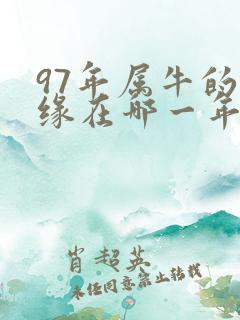 97年属牛的
缘在哪一年
肖超英
未经同意禁止转载